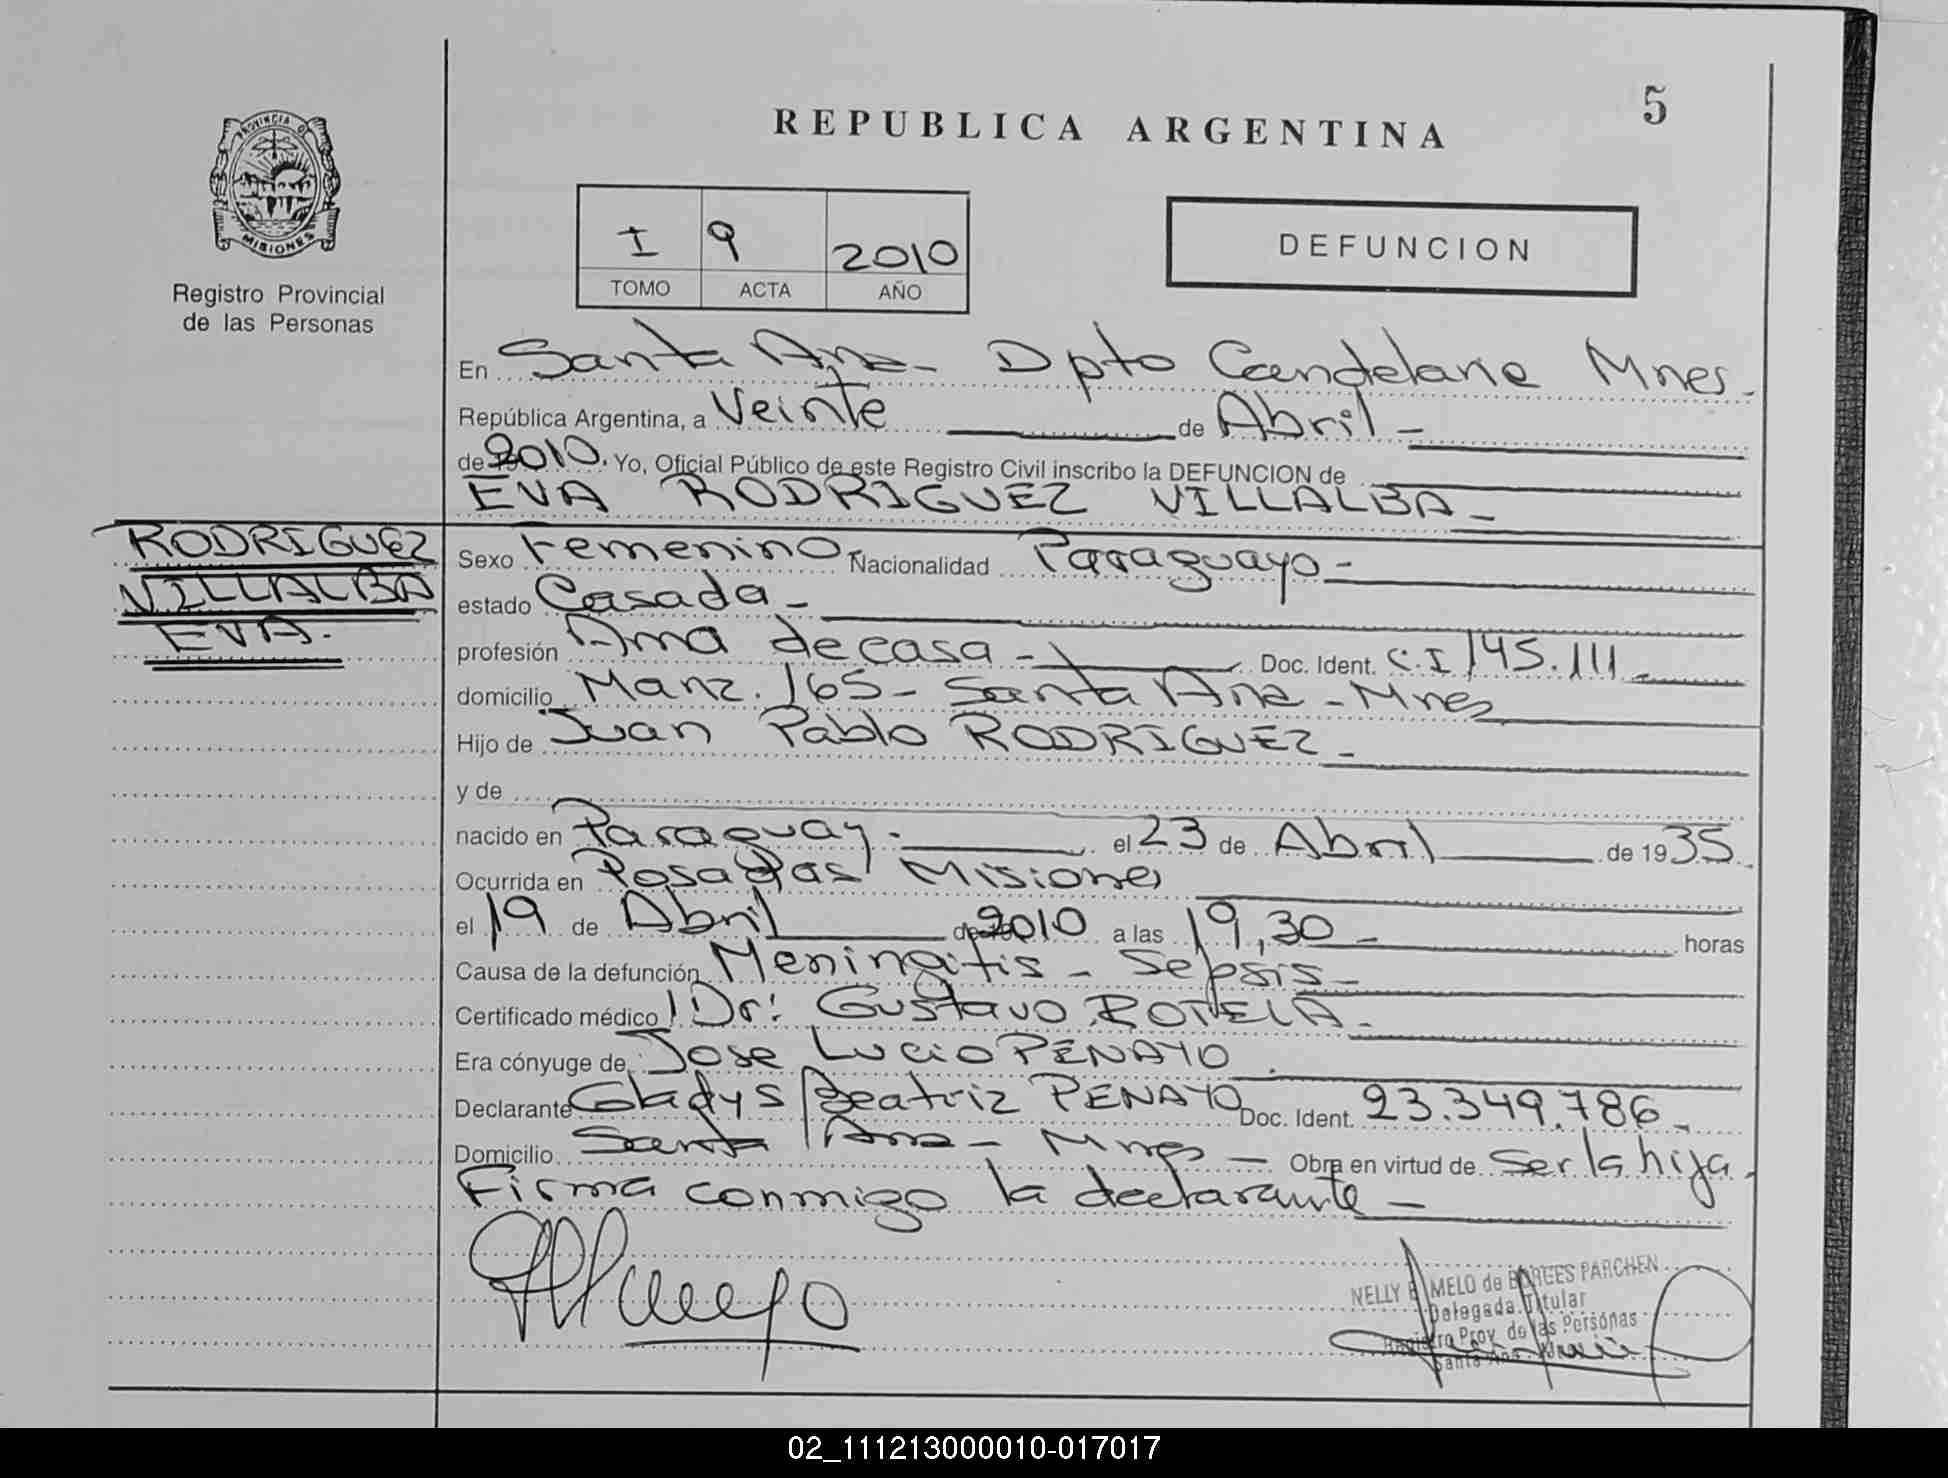 5
REPUBLICA ARGENTINA
PROVINCIA D
MISIONES
Registro Provincial
de las Personas
I 9 2010
TOMO ACTA AÑO
DEFUNCION
En Santa Ana - Dpto Candelaria Mnes.
República Argentina, a Veinte de Abril -
de 2010. Yo, Oficial Público de este Registro Civil inscribo la DEFUNCION de
EVA RODRIGUEZ VILLALBA -
RODRIGUEZ
VILLALBA
EVA.
Sexo Femenino. Nacionalidad Paraguayo -
estado Casada -
profesión Ama de casa - Doc. Ident. C.I 145.111
domicilio Manz. 165 - Santa Ana - Mnes
Hijo de Juan Pablo RODRIGUEZ -
y de
nacido en Paraguay. el 23 de Abril de 1935
Ocurrida en Posadas Misiones
el 19 de Abril de 2010 a las 19,30 - horas
Causa de la defunción Meningitis - Sepsis -
Certificado médico Dr: Gustavo ROTELA -
Era cónyuge de Jose Lucio PENAYO
Declarante Gladys Beatriz PENAYO Doc. Ident. 23.349.786 -
Domicilio Santa Ana - Mnes - Obra en virtud de Ser la hija.
Firma conmigo la declarante -
NELLY E MELO de BORGES PARCHEN
Delegada Titular
Registro Prov. de las Personas
Santa Ana
02_111213000010-017017